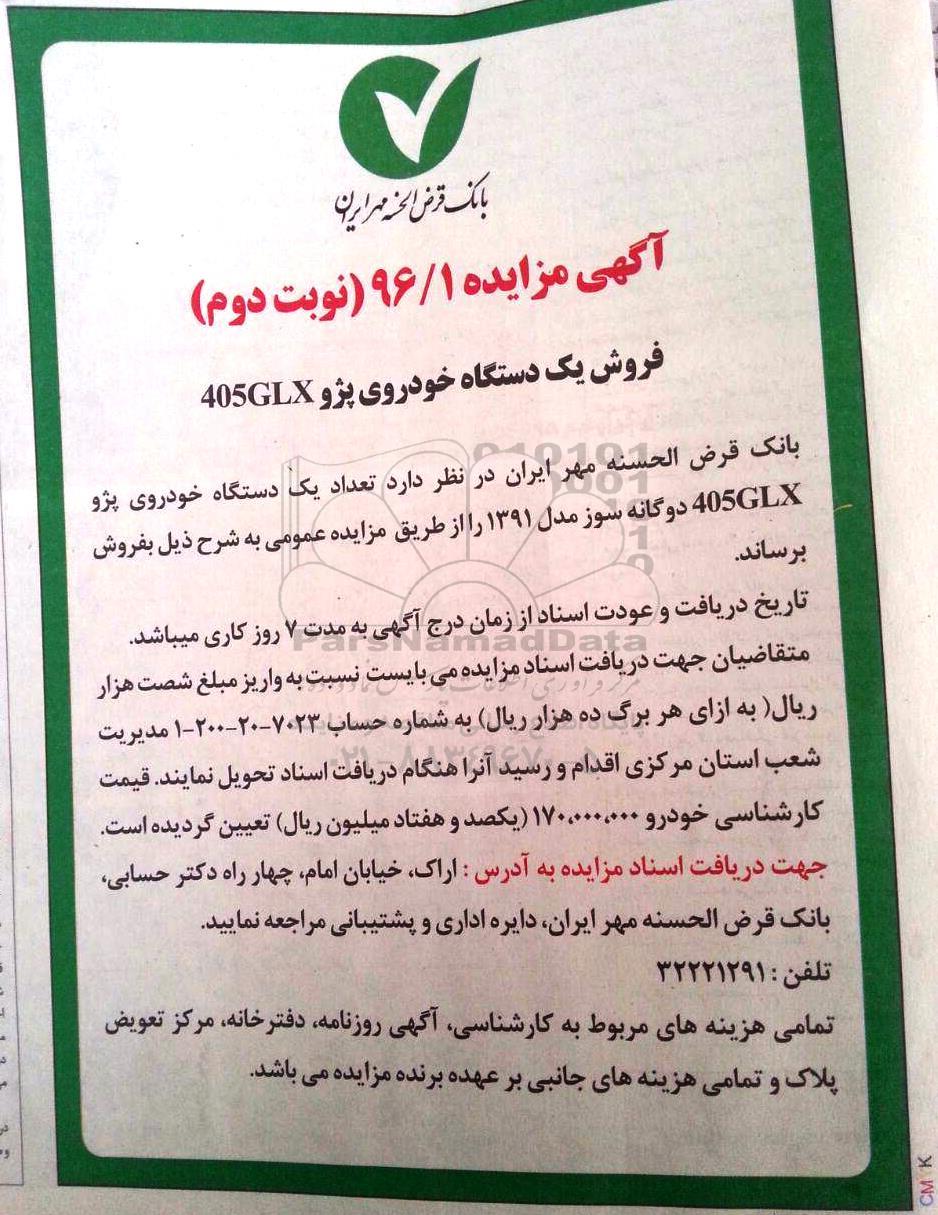 بانک قرض الحسنه مهر ایران
آگهی مزایده ۹۶/۱ (نوبت دوم)
فروش یک دستگاه خودروی پژو 405GLX
بانک قرض الحسنه مهر ایران در نظر دارد تعداد یک دستگاه خودروی پژو
405GLX دوگانه سوز مدل ۱۳۹۱ را از طریق مزایده عمومی به شرح ذیل بفروش
برساند.
تاریخ دریافت و عودت اسناد از زمان درج آگهی به مدت ۷ روز کاری میباشد.
ParsNamadData
متقاضیان جهت دریافت اسناد مزایده می بایست نسبت به واریز مبلغ شصت هزار
ریال( به ازای هر برگ ده هزار ریال) به شماره حساب ۷۰۲۳-۲۰-۲۰۰-۱ مدیریت
شعب استان مرکزی اقدام و رسید آنرا هنگام دریافت اسناد تحویل نمایند. قیمت
کارشناسی خودرو ۱۷۰،۰۰۰،۰۰۰ (یکصد و هفتاد میلیون ریال) تعیین گردیده است.
جهت دریافت اسناد مزایده به آدرس : اراک، خیابان امام، چهار راه دکتر حسابی،
بانک قرض الحسنه مهر ایران، دایره اداری و پشتیبانی مراجعه نمایید.
تلفن : ۳۲۲۲۱۲۹۱
تمامی هزینه های مربوط به کارشناسی، آگهی روزنامه، دفترخانه، مرکز تعویض
پلاک و تمامی هزینه های جانبی بر عهده برنده مزایده می باشد.